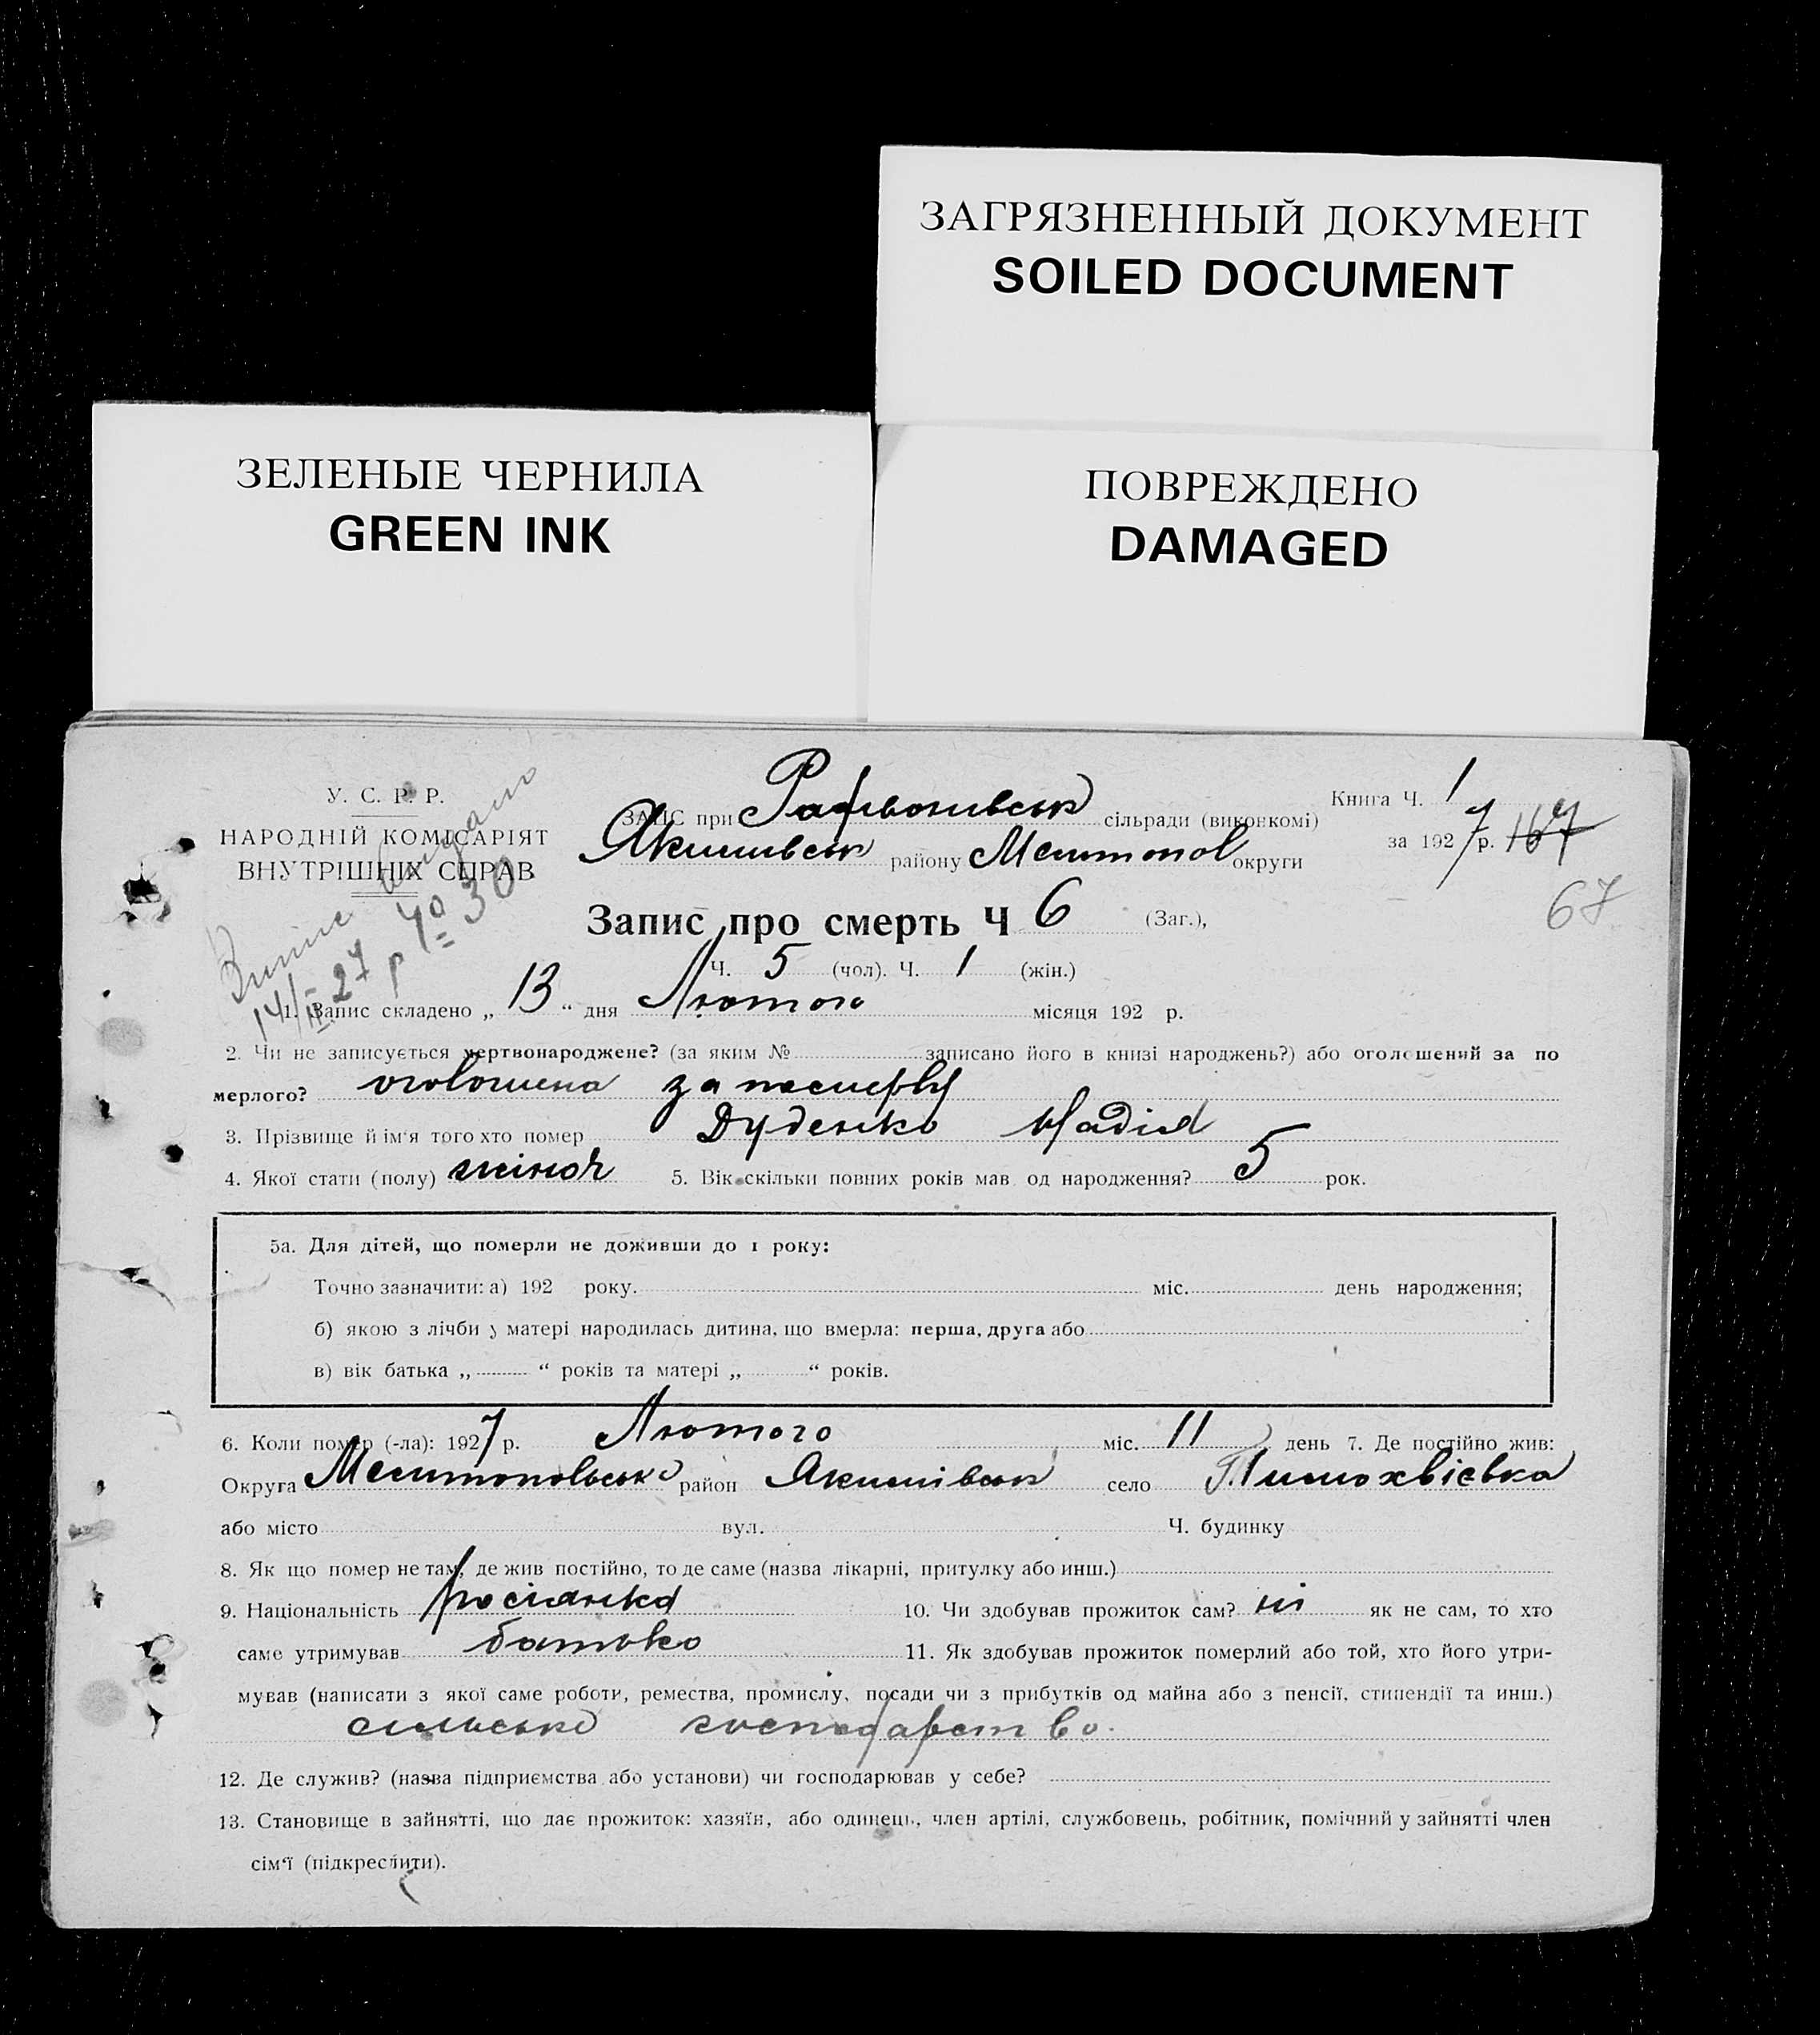 ЗАГРЯЗНЕННЫЙ ДОКУМЕНТ
SOILED DOCUMENT
ЗЕЛЕНЫЕ ЧЕРНИЛА
GREEN INK
ПОВРЕЖДЕНО
DAMAGED
У. С. Р. Р.
НАРОДНІЙ КОМІСАРІЯТ
ВНУТРІШНІХ СПРАВ
14/II 27 р № 30
ЗАПИС при сільради (виконкомі)
Якимивськ району Мелитопол округи
Книга Ч. 1
за 1927 р. 167
67
Запис про смерть Ч 6 (Заг.),
Ч. 5 (чол). Ч. 1 (жін.)
1. Запис складено „ 13 “ дня Лютого місяця 192 р.
2. Чи не записується мертвонароджене? (за яким № записано його в книзі народжень?) або оголошений за по
мерлого? оголошена за
3. Прізвище й ім'я того хто помер Дуденко Надія
4. Якої стати (полу) жіноч 5. Вік скільки повних років мав од народження? 5 рок.
5а. Для дітей, що померли не доживши до 1 року:
Точно зазначити: а) 192 року. міс. день народження;
б) якою з лічби у матері народилась дитина, що вмерла: перша, друга або
в) вік батька „ “ років та матері „ “ років.
6. Коли помер (-ла): 1927 р. Лютого міс. 11 день 7. Де постійно жив:
Округа Мелитопольськ район Якимівськ село Тимохвієвка
або місто вул. Ч. будинку
8. Як що помер не там, де жив постійно, то де саме (назва лікарні, притулку або инш.)
9. Національність росіянка 10. Чи здобував прожиток сам? ні як не сам, то хто
саме утримував батько 11. Як здобував прожиток померлий або той, хто його утри-
мував (написати з якої саме роботи, ремества, промислу, посади чи з прибутків од майна або з пенсії, стипендії та инш.)
сильське господарство.
12. Де служив? (назва підприємства або установи) чи господарював у себе?
13. Становище в зайнятті, що дає прожиток: хазяїн, або одинець, член артілі, службовець, робітник, помічний у зайнятті член
сім'ї (підкреслити).